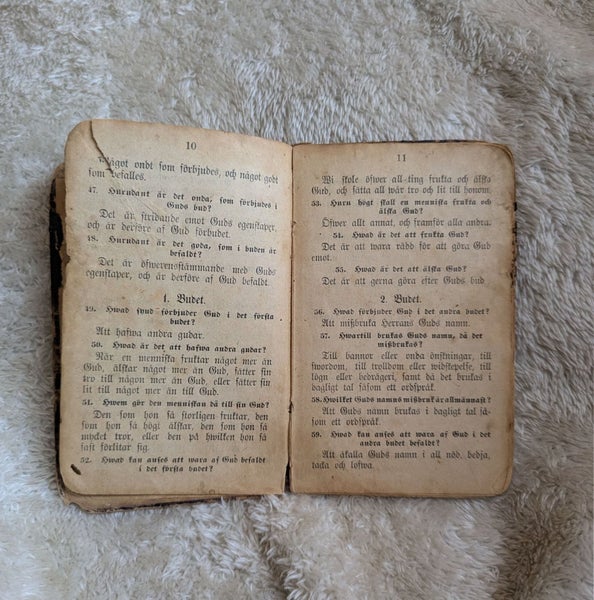 10
Något ondt som förbjudes, och något godt
som befalles.
47. Hurudant är det onda, som förbjudes i
Guds bud?
Det är stridande emot Guds egenskaper,
och är derföre af Gud förbudet.
48. Hurudant är det goda, som i buden är
befaldt?
Det är öfwerensstämmande med Guds
egenskaper, och är derföre af Gud befaldt.
1. Budet.
49. Hwad synd förbjuder Gud i det första
budet?
Att hafwa andra gudar.
50. Hwad är det att hafwa andra gudar?
När en menniska fruktar något mer än
Gud, älskar något mer än Gud, sätter sin
tro till något mer än Gud, eller sätter sin
lit till något mer än till Gud.
51. Hwem gör den menniskan då till sin Gud?
Den som hon så storligen fruktar, den
som hon så högt älskar, den som hon så
mycket tror, eller den på hwilken hon så
fast förlitar sig.
52. Hwad kan anses att wara af Gud befaldt
i det första budet?
11
Wi skole öfwer all-ting frukta och älska
Gud, och sätta all wår tro och lit till honom.
53. Huru högt skall en menniska frukta och
älska Gud?
Öfwer allt annat, och framför alla andra.
54. Hwad är det att frukta Gud?
Det är att wara rädd för att göra Gud
emot.
55. Hwad är det att älska Gud?
Det är att gerna göra efter Guds bud
2. Budet.
56. Hwad förbjuder Gud i det andra budet?
Att mißbruka Herrans Guds namn.
57. Hwartill brukas Guds namn, då det
mißbrukas?
Till bannor eller onda önskningar, till
swordom, till trolldom eller widskepelse, till
lögn eller bedrägeri, samt då det brukas i
dagligt tal såsom ett ordspråk.
58. Hwilket Guds namns mißbruk är allmännast?
Att Guds namn brukas i dagligt tal så-
som ett ordspråk.
59. Hwad kan anses att wara af Gud i det
andra budet befaldt?
Att åkalla Guds namn i all nöd, bedja,
tacka och lofwa.